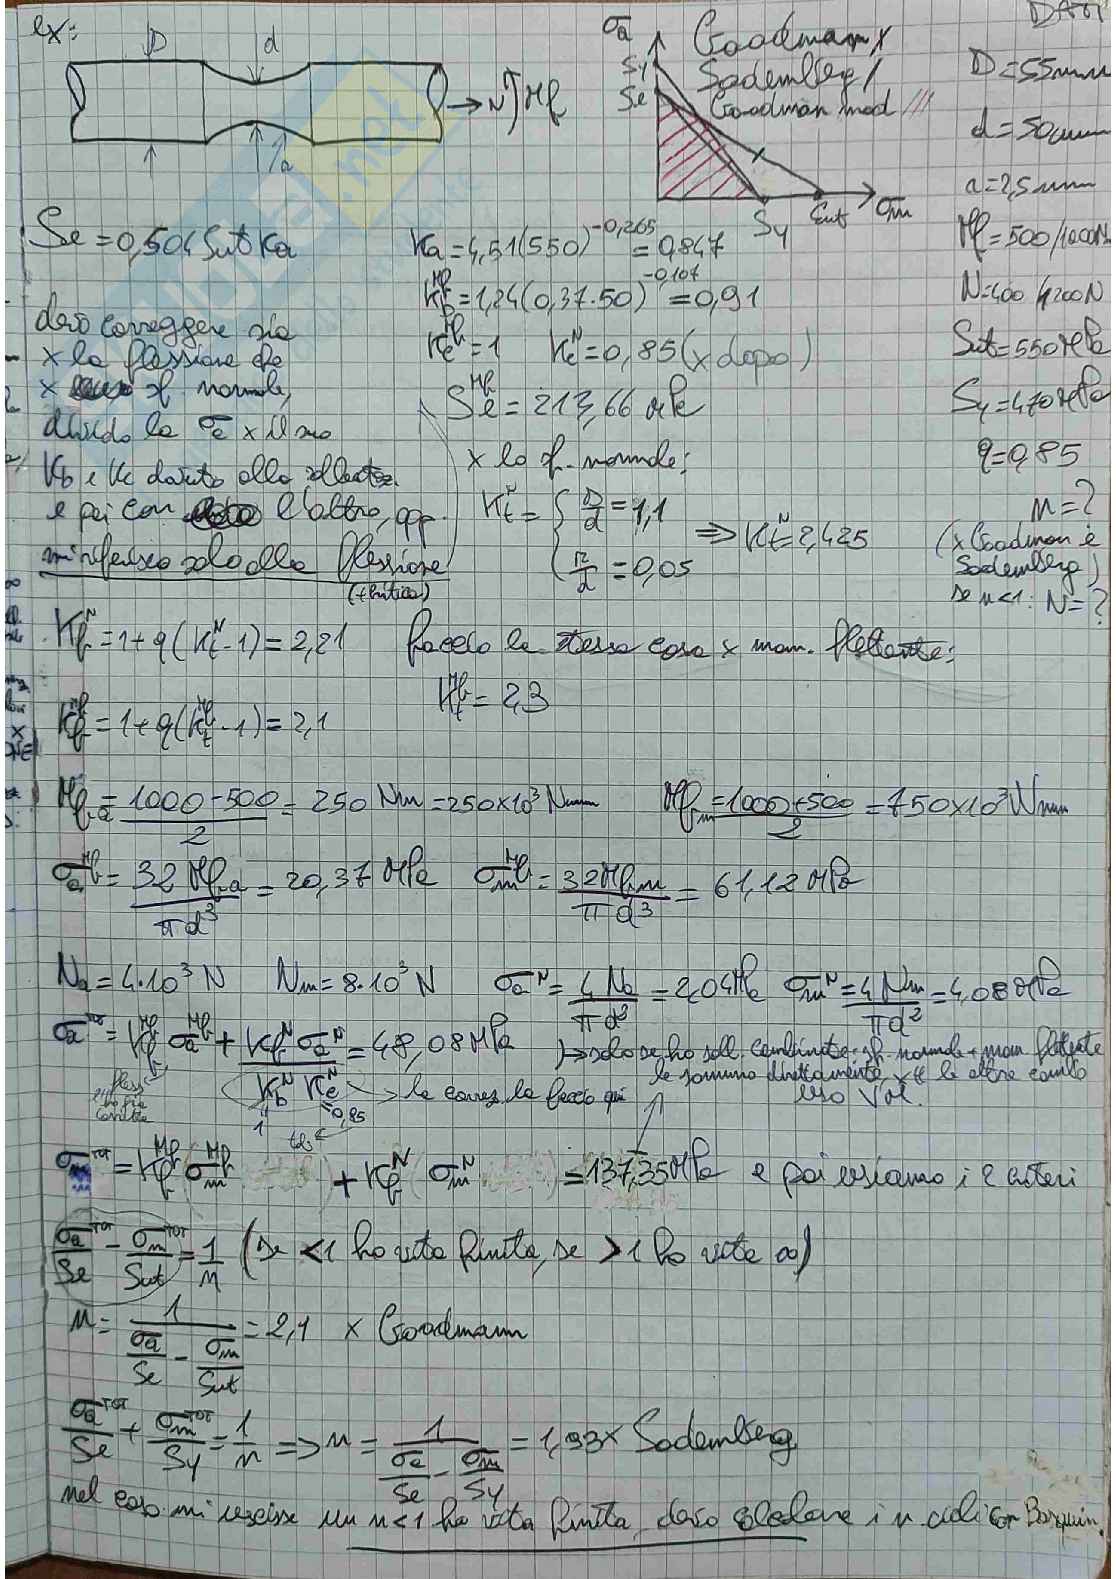 ex:
D
d
r
→ N) Mf
σa
Sy
Se
Sy
Sut
σm
Goodmann x
Sodemberg /
Goodman mod ///
DATI
D=55mm
d=50mm
r=2,5mm
Mf=500/1000N
N=400/1200N
Sut=550MPa
Sy=470MPa
q=0,85
n=?
(x Goodman e
Sodemberg)
se n<1: N=?
Se=0,504 Sut Ka
Ka=4,51(550)^-0,265=0,847
Kb^Mf=1,24(0,37·50)^-0,107=0,91
Kc^Mf=1 Kc^N=0,85 (x dopo)
Se^Mf=213,66 MPa
devo correggere sia
x la flessione che
x sf. normale,
divido la σa x il suo
Kb e Kc dovuto alla sollecitaz.
e poi con l'altro, opp.
mi riferisco solo alla flessione
(+ critica)
x lo sf. normale:
Kt^N= { D/d=1,1
r/d=0,05
⇒ Kt^N=2,425
Kf^N=1+q(Kt^N-1)=2,21 faccio la stessa cosa x mom. flettente:
Kt^Mf=2,3
Kf^Mf=1+q(Kt^Mf-1)=2,1
Mfa=1000-500/2=250 Nm=250x10³ Nmm Mfm=1000+500/2=750x10³ Nmm
σa^Mf=32 Mfa/πd³=20,37 MPa σm^Mf=32Mfm/πd³=61,12 MPa
Na=4·10³ N Nm=8·10³ N σa^N=4Na/πd²=2,04MPa σm^N=4Nm/πd²=4,08MPa
σa^TOT=Kf^Mf σa^Mf+Kf^N σa^N/Kb^N Kc^N=48,08MPa
→ solo se ho soll. combinate sf. normale + mom flettente
le sommo direttamente, x le altre combo
uso V.M.
fless
ho già
corretta
1
=0,85
→ la correz. la faccio qui
σm^TOT=Kf^Mf(σm^Mf)+Kf^N(σm^N)=137,35MPa e poi usiamo i 2 criteri
σa^TOT/Se-σm^TOT/Sut=1/n (se <1 ho vita finita, se >1 ho vita ∞)
n=1/(σa/Se-σm/Sut)=2,1 x Goodmann
σa^TOT/Se+σm^TOT/Sy=1/n ⇒ n=1/(σa/Se-σm/Sy)=1,93 x Sodemberg
nel caso mi uscisse un n<1 ho vita finita, devo calcolare i n cicli con Basquin.